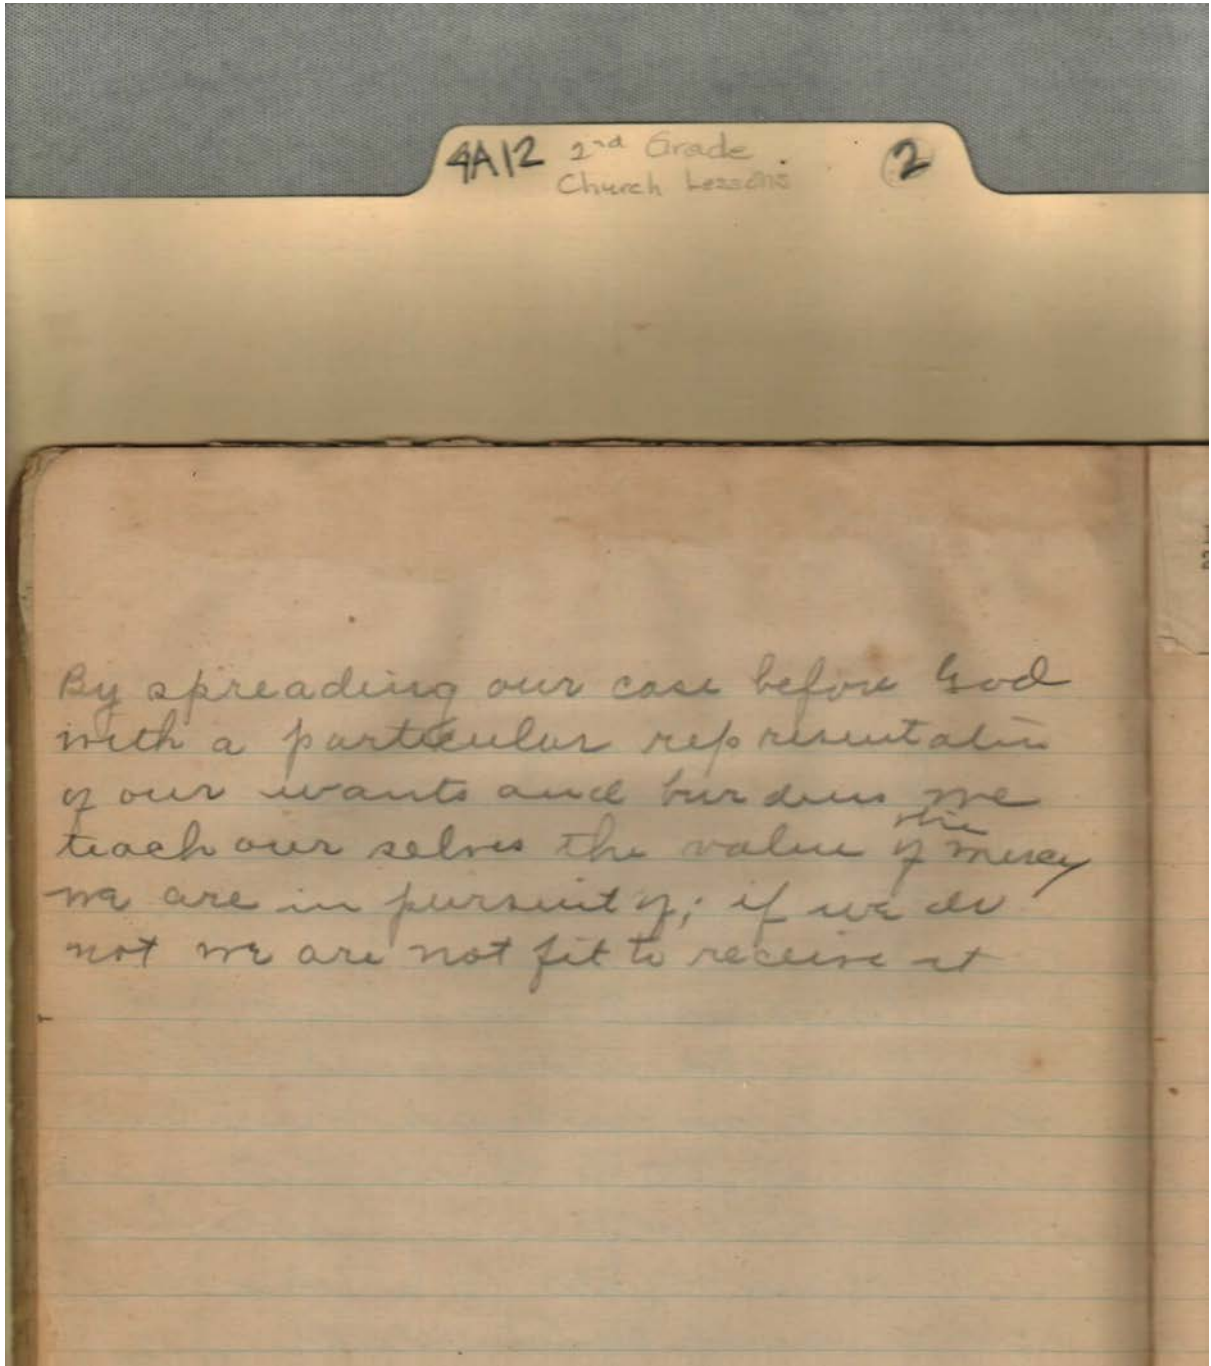 4A12 2nd Grade (2)
Church Lessons
By spreading our case before God
with a particular representation
of our wants and burdens we
teach our selves the value of the mercy
we are in pursuit of; if we do
not we are not fit to receive it